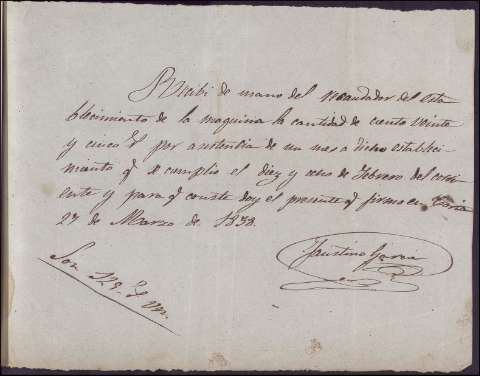 Recibi de mano del recaudador del esta
blecimiento de la maquina la cantidad de ciento veinte
y cinco rs por asistencia de un mes a dicho estableci
miento q. se cumplio el diez y ocho de Febrero del corri
ente y para q. conste doy el presente q. firmo en Soria
27 de Marzo de 1838.
Faustino Garcia
Son 125 rs vn.